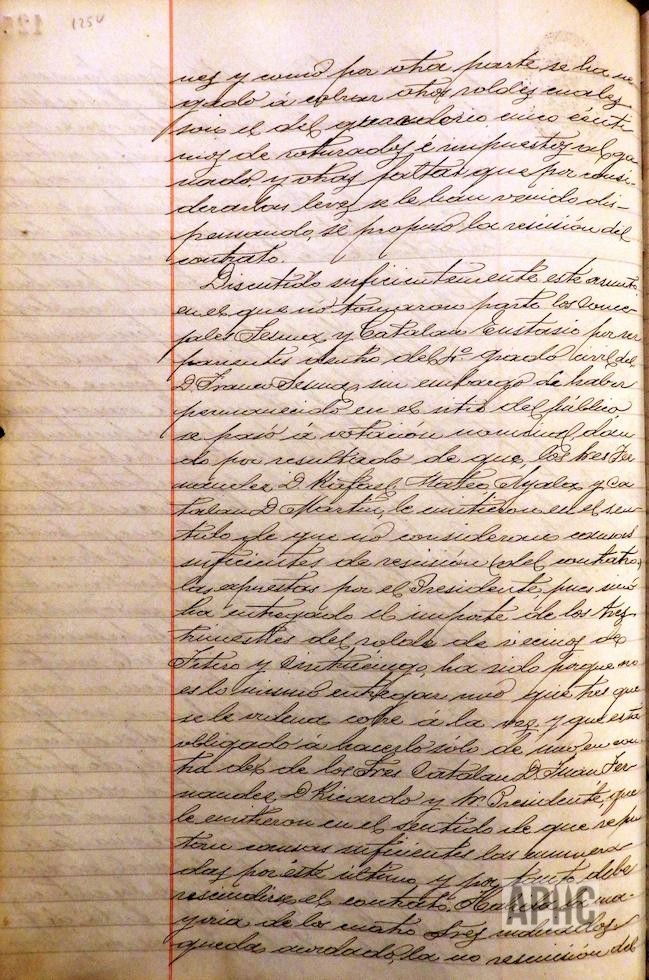 125v
nes y como por otra parte se ha ne
gado á cobrar otros roldes cuales
son el del guarderio cinco cénti
mos de roturados é impuestos al ga
nado, y otras faltas que por consi
derarlas leves se le han venido dis-
pensando, se propuso la rescisión del
contrato.
Discutido suficientemente este asunto
en el que no tomaron parte los Conce
jales Sesma y Catalan Eustasio por ser
parientes dentro del 4º grado civil del
D. Franco Sesma, sin embargo de haber
permanecido en el sitio del público
se pasó á votación nominal dan
do por resultado de que, los tres Fer
nandez D. Rafael, Mateo, Ayala, y Ca
talan D. Martin, le emitieron en el sen
tido de que no consideraron causas
suficientes de rescisión (del contrato)
las expuestas por el Presidente, pues sinó
ha entregado el importe de los tres
trimestres del rolde de vecinos de
Fitero y Cintruénigo, ha sido porque no
es lo mismo entregar uno que tres que
se le ordena cobre á la vez, y que está
obligado á hacerlo sólo de uno, en con
tra dex de los Sres Catalan D. Juan, Fer
nandez D. Ricardo y Sr. Presidente, que
le emitieron en el sentido de que se repu
tan causas suficientes las enumera
das por éste último y por tanto debe
rescindirse el contrato.
yoria de los cuatro Sres individuos
queda acordada la no rescisión del
APHC